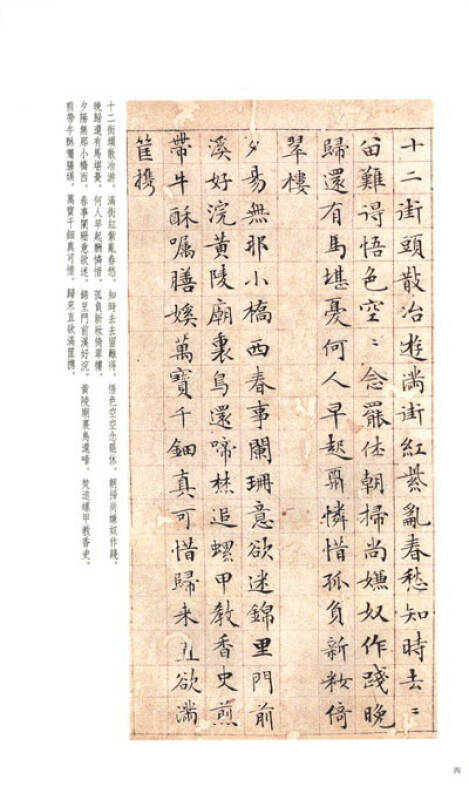 十二街頭散冶遊滿街紅紫亂春愁知時去〻
留難得悟色空〻念罷休朝掃尚嫌奴作踐晚
歸還有馬堪憂何人早起酬憐惜孤負新妝倚
翠樓
夕易無那小橋西春事闌珊意欲迷錦里門前
溪好浣黃陵廟裏鳥還啼焚追螺甲教香史煎
帶牛酥囑膳媐萬寶千鈿真可惜歸來直欲滿
筐攜
十二街頭散冶遊，滿街紅紫亂春愁，知時去去留難得，悟色空空念罷休，朝掃尚嫌奴作踐，
晚歸還有馬堪憂，何人早起酬憐惜，孤負新妝倚翠樓，
夕陽無那小橋西，春事闌珊意欲迷，錦里門前溪好浣，黃陵廟裏鳥還啼，焚追螺甲教香史，
煎帶牛酥囑膳媐，萬寶千鈿真可惜，歸來直欲滿筐攜，
四